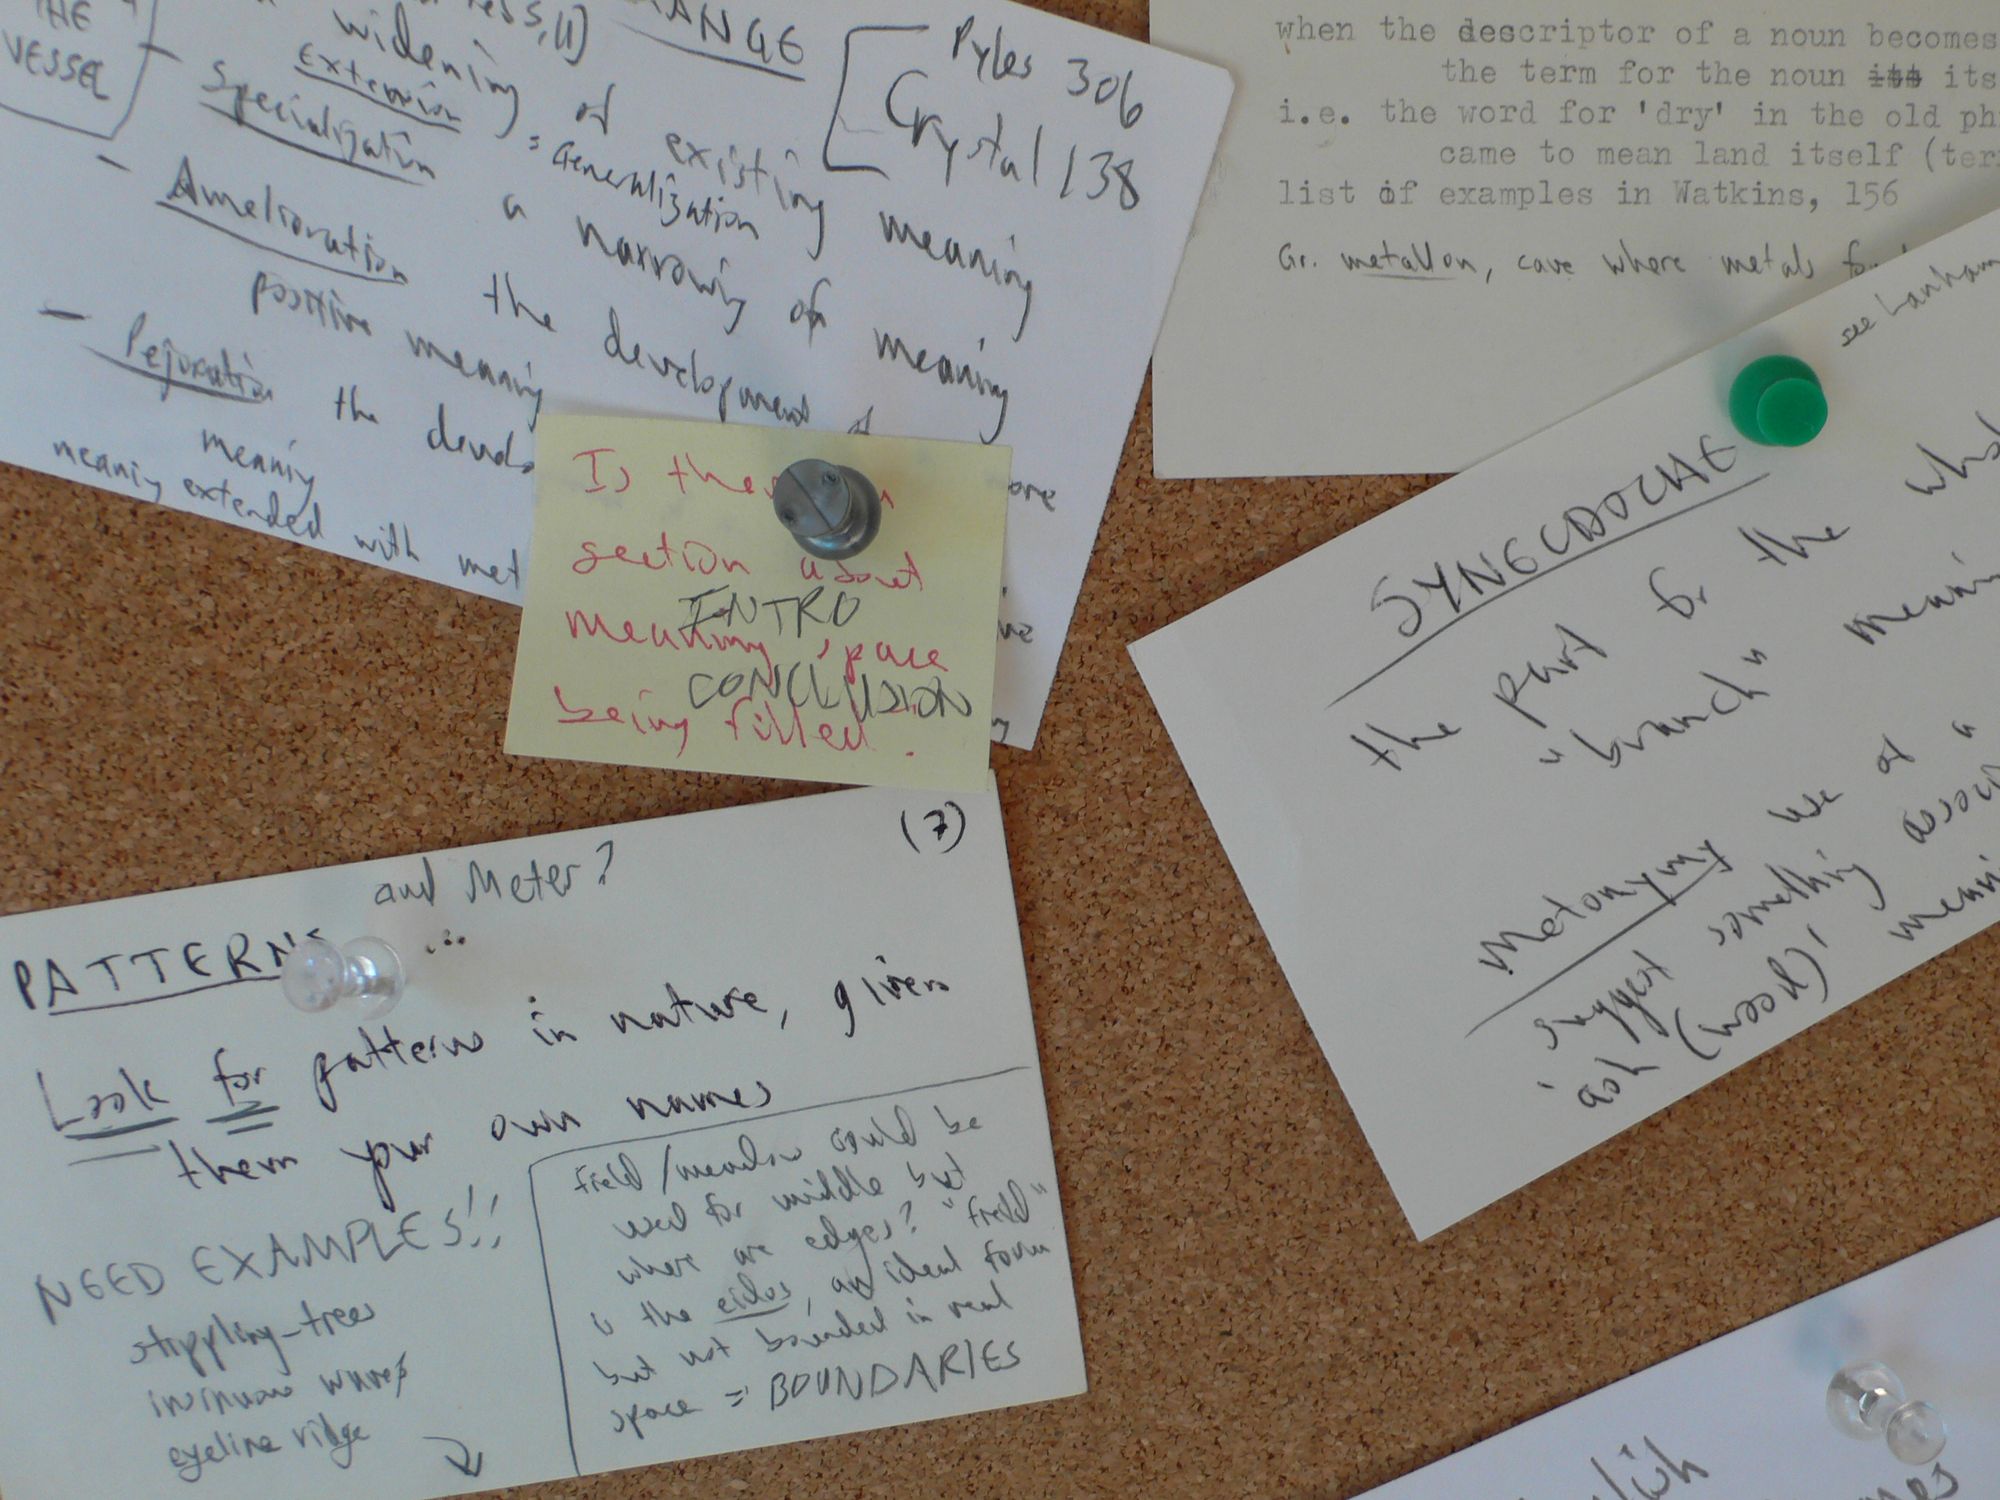 THE
VESSEL
widening of existing meaning
Extension = Generalization
- Specialization a narrowing of meaning
- Amelioration the development of
positive meaning
- Pejoration the develo
more
meaning
meaning extended with met
Pyles 306
Crystal 138
when the descriptor of a noun becomes
the term for the noun its its
i.e. the word for 'dry' in the old ph
came to mean land itself (ter
list of examples in Watkins, 156
Gr. metallon, cave where metals
see Lanham
SYNECDOCHE
the part for the
"branch" meani
Metonymy use of a
suggest something assoc
'ash (wood),
Is
section about
INTRO
meaning space
CONCLUSION
being filled.
(7)
and Meter?
PATTERNS
Look for patterns in nature, given
them your own names
NEED EXAMPLES!!
stippling-trees
eyeline ridge
field/meadow could be
used for middle but
where are edges? "field"
is the eidos, an ideal form
but not bounded in real
space = BOUNDARIES